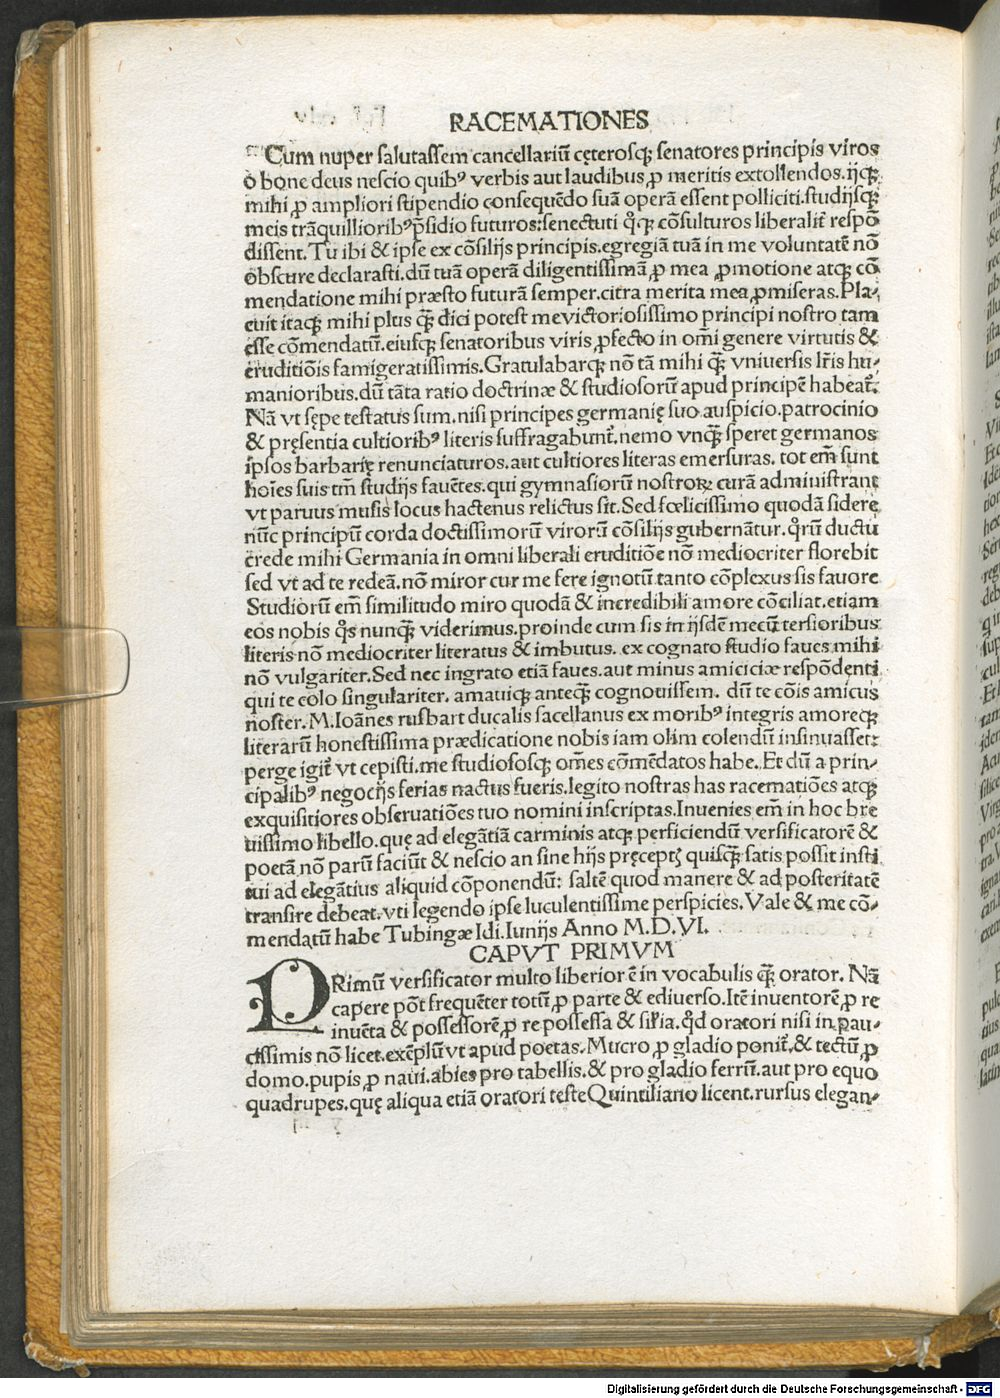 RACEMATIONES
Cum nuper salutassem cancellariũ cęterosqꝫ senatores principis viros
o bone deus nescio quibꝰ verbis aut laudibus ꝓ meritis extollendos. ijqꝫ
mihi ꝓ ampliori stipendio consequẽdo suã operã essent polliciti. studijsqꝫ
meis trãquillioribꝰ p̃sidio futuros: senectuti qͦqꝫ cõsulturos liberalit᷑ respõ
dissent. Tu ibi & ipse ex cõsilijs principis. egregiã tuã in me voluntatẽ nõ
obscure declarasti. dũ tuã operã diligentissimã ꝓ mea ꝓmotione atqꝫ cõ
mendatione mihi præsto futurã semper. citra merita mea ꝓmiseras. Pla-
cuit itaqꝫ mihi plus q̃ꝫ dici potest me victoriosissimo principi nostro tam
esse cõmendatũ. eiusqꝫ senatoribus viris ꝓfecto in om̃i genere virtutis &
eruditiõis famigeratissimis. Gratulabarqꝫ nõ tã mihi q̃ꝫ vniuersis lr̃is hu-
manioribus. dũ tãta ratio doctrinæ & studiosorũ apud principẽ habeat᷑.
Nã vt sępe testatus sum. nisi principes germanię suo auspicio. patrocinio
& pręsentia cultioribꝰ literis suffragabunt᷑. nemo vnq̃ꝫ speret germanos
ipsos barbarię renunciaturos. aut cultiores literas emersuras. tot em̃ sunt
hoĩes suis tm̃ studijs fauẽtes. qui gymnasiorũ nostroꝝ curã administrant
vt paruus musis locus hactenus relictus sit. Sed fœlicissimo quodã sidere
nũc principũ corda doctissimorũ virorũ cõsilijs gubernãtur. qͦrũ ductu
crede mihi Germania in omni liberali eruditiõe nõ mediocriter florebit
sed vt ad te redeã. nõ miror cur me fere ignotũ tanto cõplexus sis fauore
Studiorũ em̃ similitudo miro quodã & incredibili amore cõciliat. etiam
eos nobis qͦs nunq̃ꝫ viderimus. proinde cum sis in ijsdẽ mecũ tersioribus
literis nõ mediocriter literatus & imbutus. ex cognato studio faues mihi
nõ vulgariter. Sed nec ingrato etiã faues. aut minus amiciciæ respõdenti
qui te colo singulariter. amauiqꝫ anteqꝫ̃ cognouissem. dũ te cõis amicus
noster. M. Ioãnes rusbart ducalis sacellanus ex moribꝰ integris amoreqꝫ
literarũ honestissima prædicatione nobis iam olim colendũ insinuasset:
perge igit᷑ vt cepisti. me studiososqꝫ om̃es cõmẽdatos habe. Et dũ a prin-
cipalibꝰ negocijs ferias nactus fueris. legito nostras has racematiões atqꝫ
exquisitiores obseruatiões tuo nomini inscriptas. Inuenies em̃ in hoc bre
uissimo libello. quę ad elegãtiã carminis atqꝫ perficiendũ versificatorẽ &
poetã nõ parũ faciũt & nescio an sine hijs pręceptꝭ quisq̃ꝫ satis possit insti
tui ad elegãtius aliquid cõponendũ: saltẽ quod manere & ad posteritatẽ
transire debeat. vti legendo ipse luculentissime perspicies. Vale & me cõ-
mendatũ habe Tubingæ Idi. Iunijs Anno M.D.VI.
CAPVT PRIMVM
PRimũ versificator multo liberior ẽ in vocabulis q̃ꝫ orator. Nã
capere põt frequẽter totũ ꝓ parte & ediuerso. Itẽ inuentorẽ ꝓ re
inuẽta & possessorẽ ꝓ re possessa & sil̃ia. qd̾ oratori nisi in pau-
cissimis nõ licet. exẽplũ vt apud poetas. Mucro ꝓ gladio ponit᷑. & tectũ ꝓ
domo. pupis ꝓ naui. abies pro tabellis. & pro gladio ferrũ. aut pro equo
quadrupes. quę aliqua etiã oratori teste Quintiliano licent. rursus elegan-
Digitalisierung gefördert durch die Deutsche Forschungsgemeinschaft - DFG